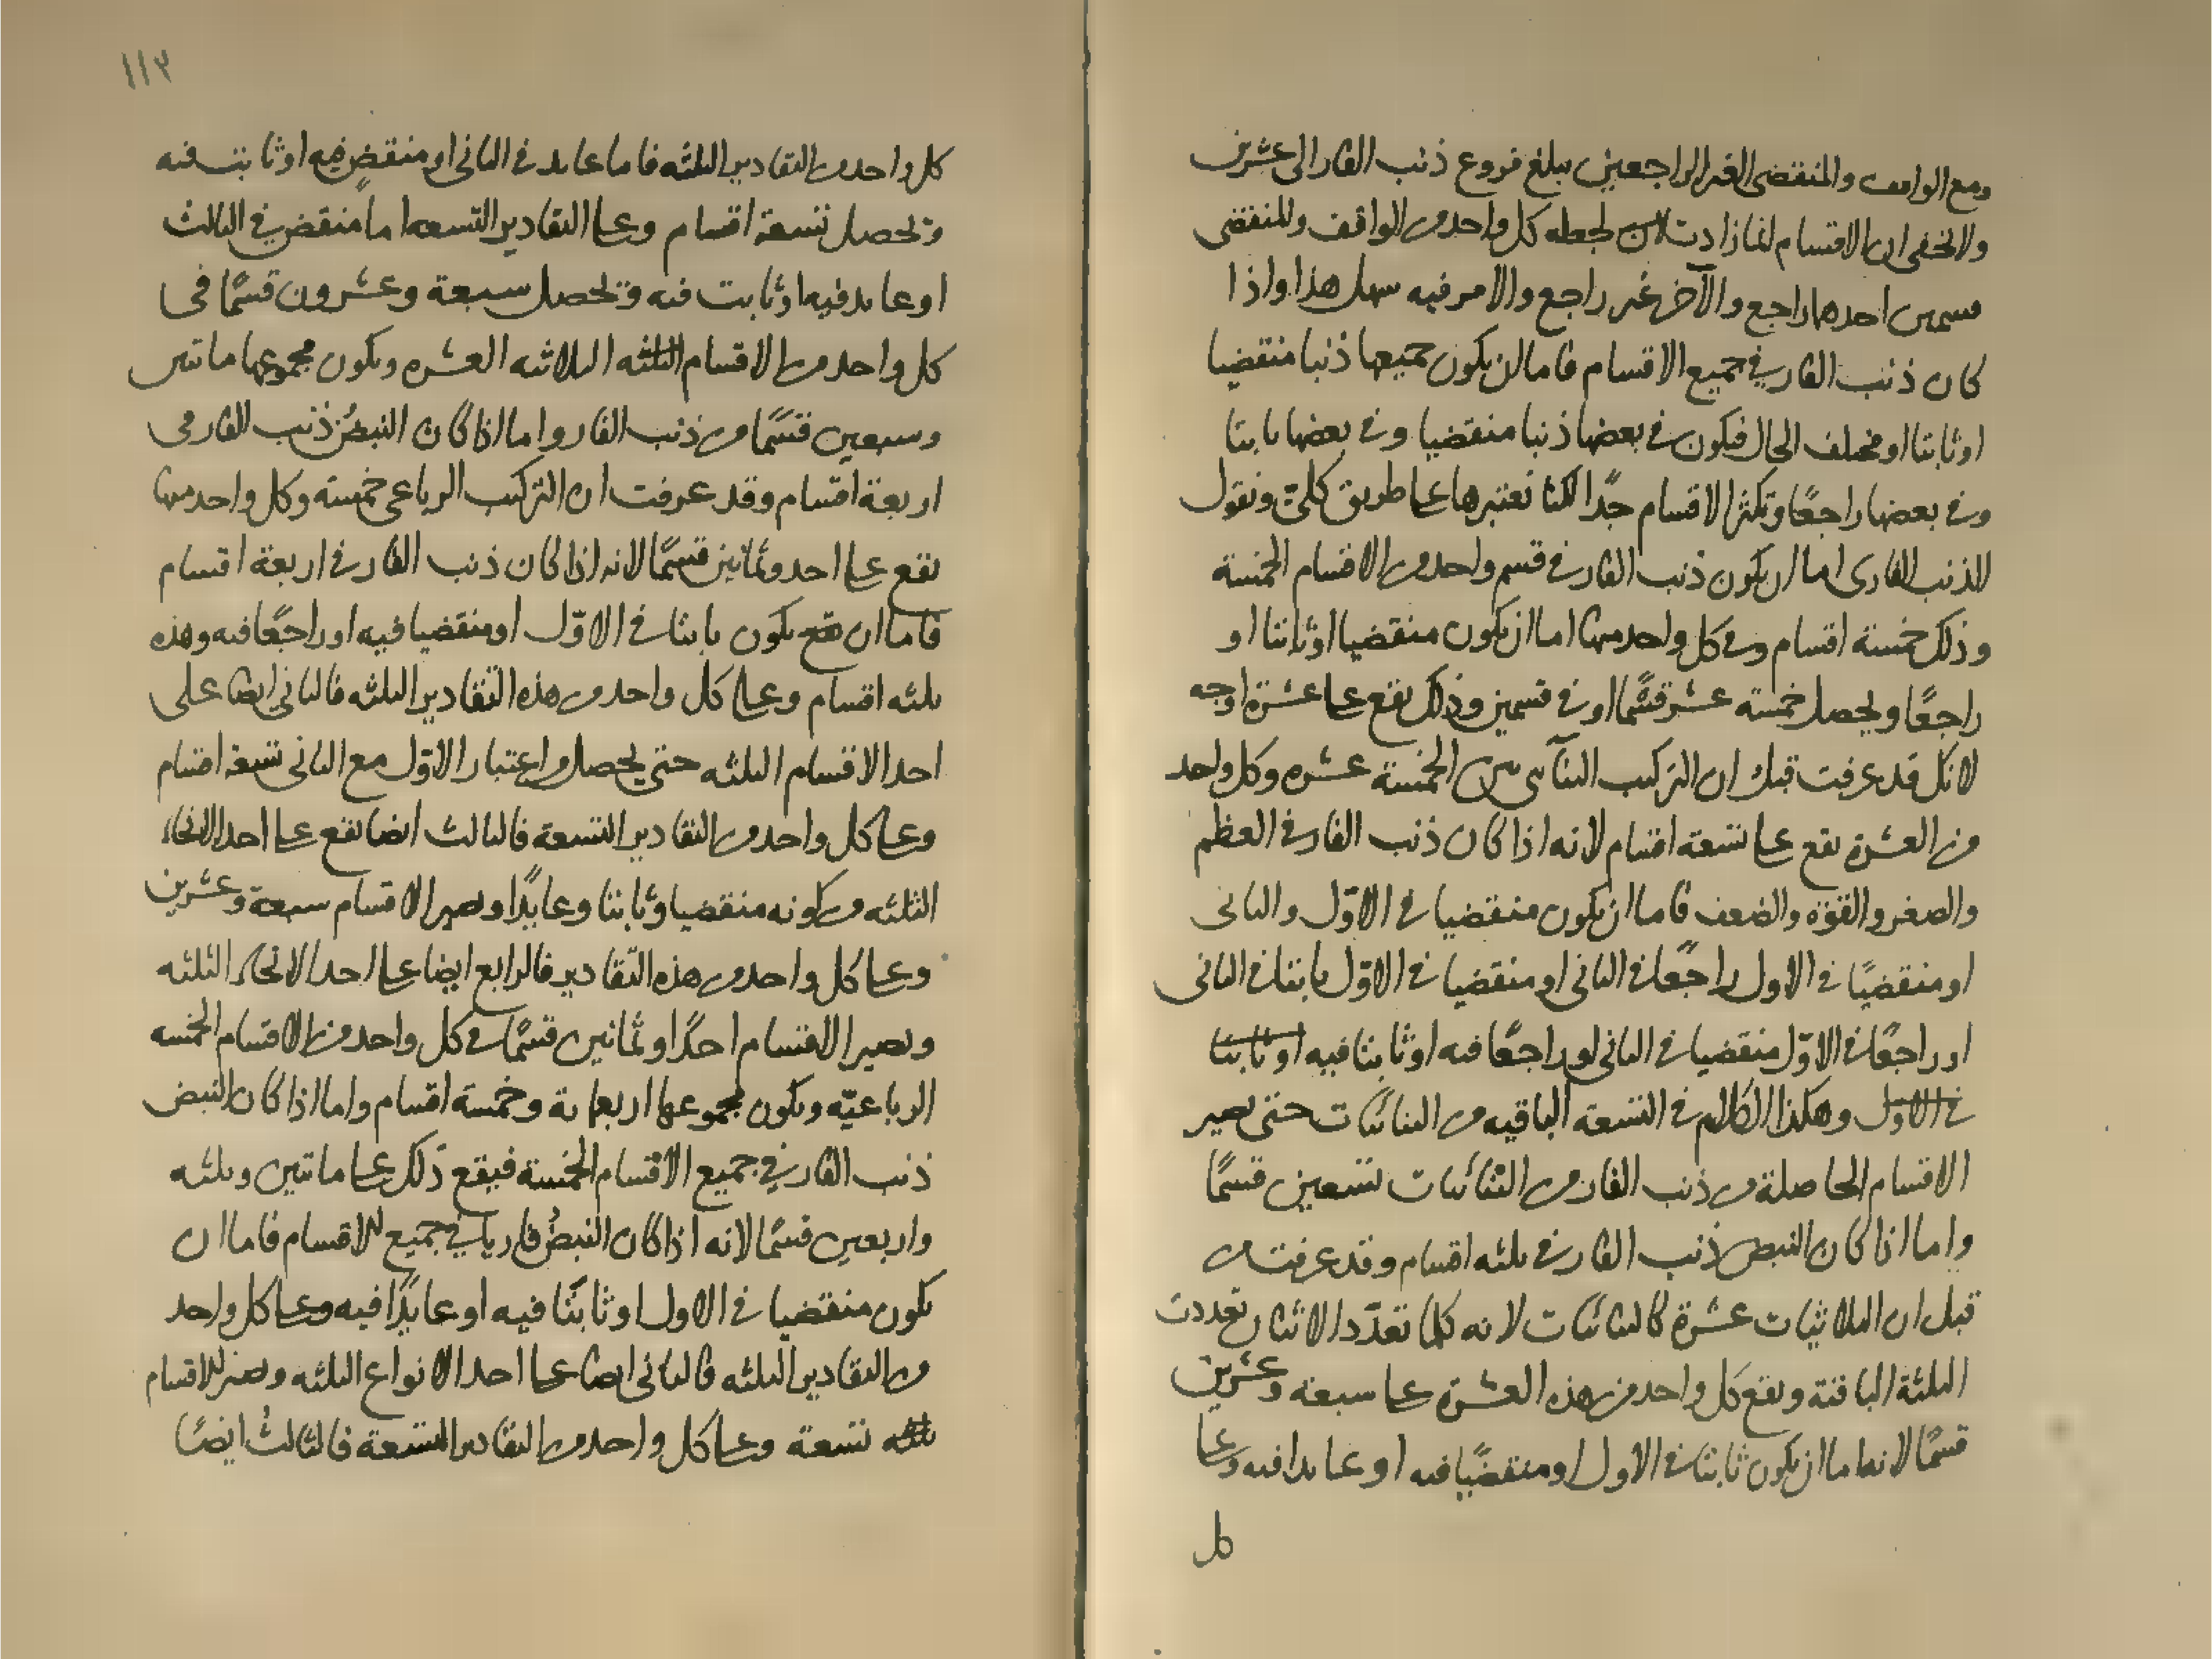 ومع الواقف والمنقضى الغير الراجعين يبلغ فروع ذنب الفار الى عشرين
ولا يخفى ان الاقسام انما زادت لجعله كل واحد من الواقف والمنقضى
قسمين احدهما راجع والآخر غير راجع والامر فيه سهل هذا واذا
كان ذنب الفار في جميع الاقسام فاما ان يكون جميعها ذنبا منقضيا
اوثابتا او مختلف الحال فيكون في بعضها ذنبا منقضيا وفي بعضها ثابتا
وفي بعضها راجعًا وتكثر الاقسام جدًا لكنا نعتبرها على طريق كلىّ ونقول
الذنب الفارى اما ان يكون ذنب الفار في قسم واحد من الاقسام الخمسة
وذلك خمسة اقسام وفي كل واحد منها اما ان يكون منقضيا اوثابتا او
راجعًا ويحصل خمسة عشر قسمًا او في قسمين وذلك يقع على عشرة اوجه
لانك قد عرفت قبل ان التركيب الثنائى من الخمسة عشره وكل واحد
من العشرة يقع على تسعة اقسام لانه اذا كان ذنب الفار في العظم
والصغر والقوة والضعف فاما ان يكون منقضيا في الاوّل والثانى
او منقضيًا في الاول راجعًا في الثانى او منقضيا في الاوّل ثابتا في الثانى
او راجعًا في الاوّل منقضيا في الثانى او راجعًا فيه اوثابتا فيه اوثابتا
في الاول وهكذا الكلام في التسعة الباقيه من الثنائيات حتى يصير
الاقسام الحاصلة من ذنب الفار من الثنائيات تسعين قسمًا
واما اذا كان النبض ذنب الفار في ثلثه اقسام وقد عرفت من
قبل ان الثلاثيات عشرة كالثنائيات لانه كلما تعدّد الاثنان تعددت
الثلثة الباقية ويقع كل واحد من هذه العشرة على سبعة وعشرين
قسمًا لانه اما ان يكون ثابتا في الاول او منقضيًا فيه او عائدا فيه وعلى
كل
١١٢
كل واحد من التقادير الثلثه فاما عائد في الثانى او منقضٍ فيه او ثابت فيه
وتحصل تسعة اقسام وعلى التقادير التسعه اما منقض في الثالث
او عائد فيه او ثابت فيه وتحصل سبعة وعشرون قسمًا في
كل واحد من الاقسام الثلثه الثلاثيه العشره ويكون مجموعها مائتين
وسبعين قسمًا من ذنب الفار واما اذا كان النبضُ ذنب الفار في
اربعة اقسام وقد عرفت ان التركيب الرباعى خمسته وكل واحد منها
يقع على احد وثمانين قسمًا لانه اذا كان ذنب الفار في اربعة اقسام
فاما ان يقع يكون ثابتا في الاوّل او منقضيا فيه او راجعًا فيه وهذه
ثلثه اقسام وعلى كل واحد من هذه التقادير الثلثه فالثانى ايضا على
احد الاقسام الثلثه حتى يحصل من اعتبار الاوّل مع الثانى تسعة اقسام
وعلى كل واحد من التقادير التسعة فالثالث ايضا يقع على احد الانحاء
الثلثه من كونه منقضيا وثابتا وعايدًا ويصير الاقسام سبعة وعشرين
وعلى كل واحد من هذه التقادير فالرابع ايضا على احد الانحاء الثلثه
ويصير الاقسام احدًا وثمانين قسمًا في كل واحد من الاقسام الخمسه
الرباعيّه ويكون مجموعها اربعمائة وخمسة اقسام واما اذا كان النبض
ذنب الفار في جميع الاقسام الخمسة فيقع ذلك على مائتين وثلثه
واربعين قسمًا لانه اذا كان النبضُ فاريا في جميع الاقسام فاما ان
يكون منقضيا في الاول او ثابتًا فيه او عايدًا فيه وعلى كل واحد
من التقادير الثلثه فالثانى ايضا على احد الانواع الثلثه ويصير الاقسام
ثلثه تسعة وعلى كل واحد من التقادير التسعة فالثالثُ ايضًا